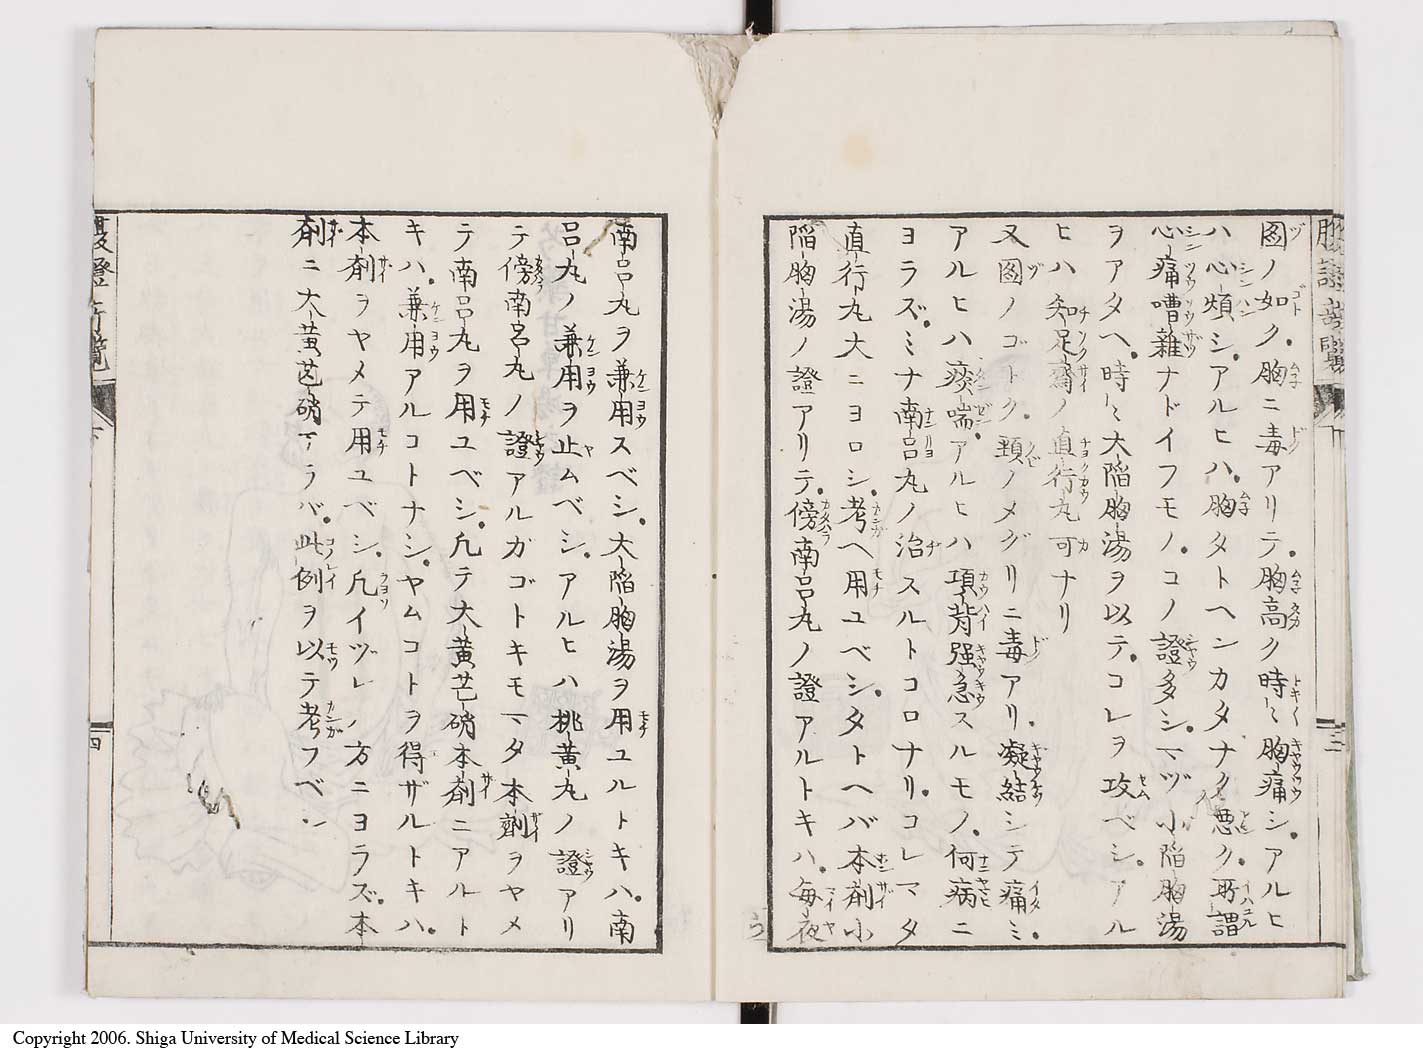 腹證奇覽
下
三
圖ノ如ク胸ニ毒アリテ胸高ク時〻胸痛シアルヒ
ハ心煩シアルヒハ胸タトヘンカタナク悪ク所謂
心痛嘈雜ナドイフモノコノ證多シマヅ小陥胸湯
ヲアタヘ時〻大陥胸湯ヲ以テコレヲ攻ベシアル
ヒハ知足齋ノ直行丸可ナリ
又圖ノゴトク頚ノメグリニ毒アリ凝結シテ痛ミ
アルヒハ痰喘アルヒハ項背强急スルモノ何病ニ
ヨラズミナ南呂丸ノ治スルトコロナリコレマタ
直行丸大ニヨロシ考ヘ用ユベシタトヘバ本剤小
陥胸湯ノ證アリテ傍南呂丸ノ證アルトキハ毎夜
南呂丸ヲ兼用スベシ大陥胸湯ヲ用ユルトキハ南
呂丸ノ兼用ヲ止ムベシアルヒハ桃黄丸ノ證アリ
テ傍南呂丸ノ證アルガゴトキモマタ本劑ヲヤメ
テ南呂丸ヲ用ユベシ凡テ大黄芒硝本剤ニアルト
キハ兼用アルコトナシヤムコトヲ得ザルトキハ
本剤ヲヤメテ用ユベシ凡イヅレノ方ニヨラズ本
剤ニ大黄芒硝アラバ此例ヲ以テ考フベシ
腹證奇覽
下
四
Copyright 2006. Shiga University of Medical Science Library